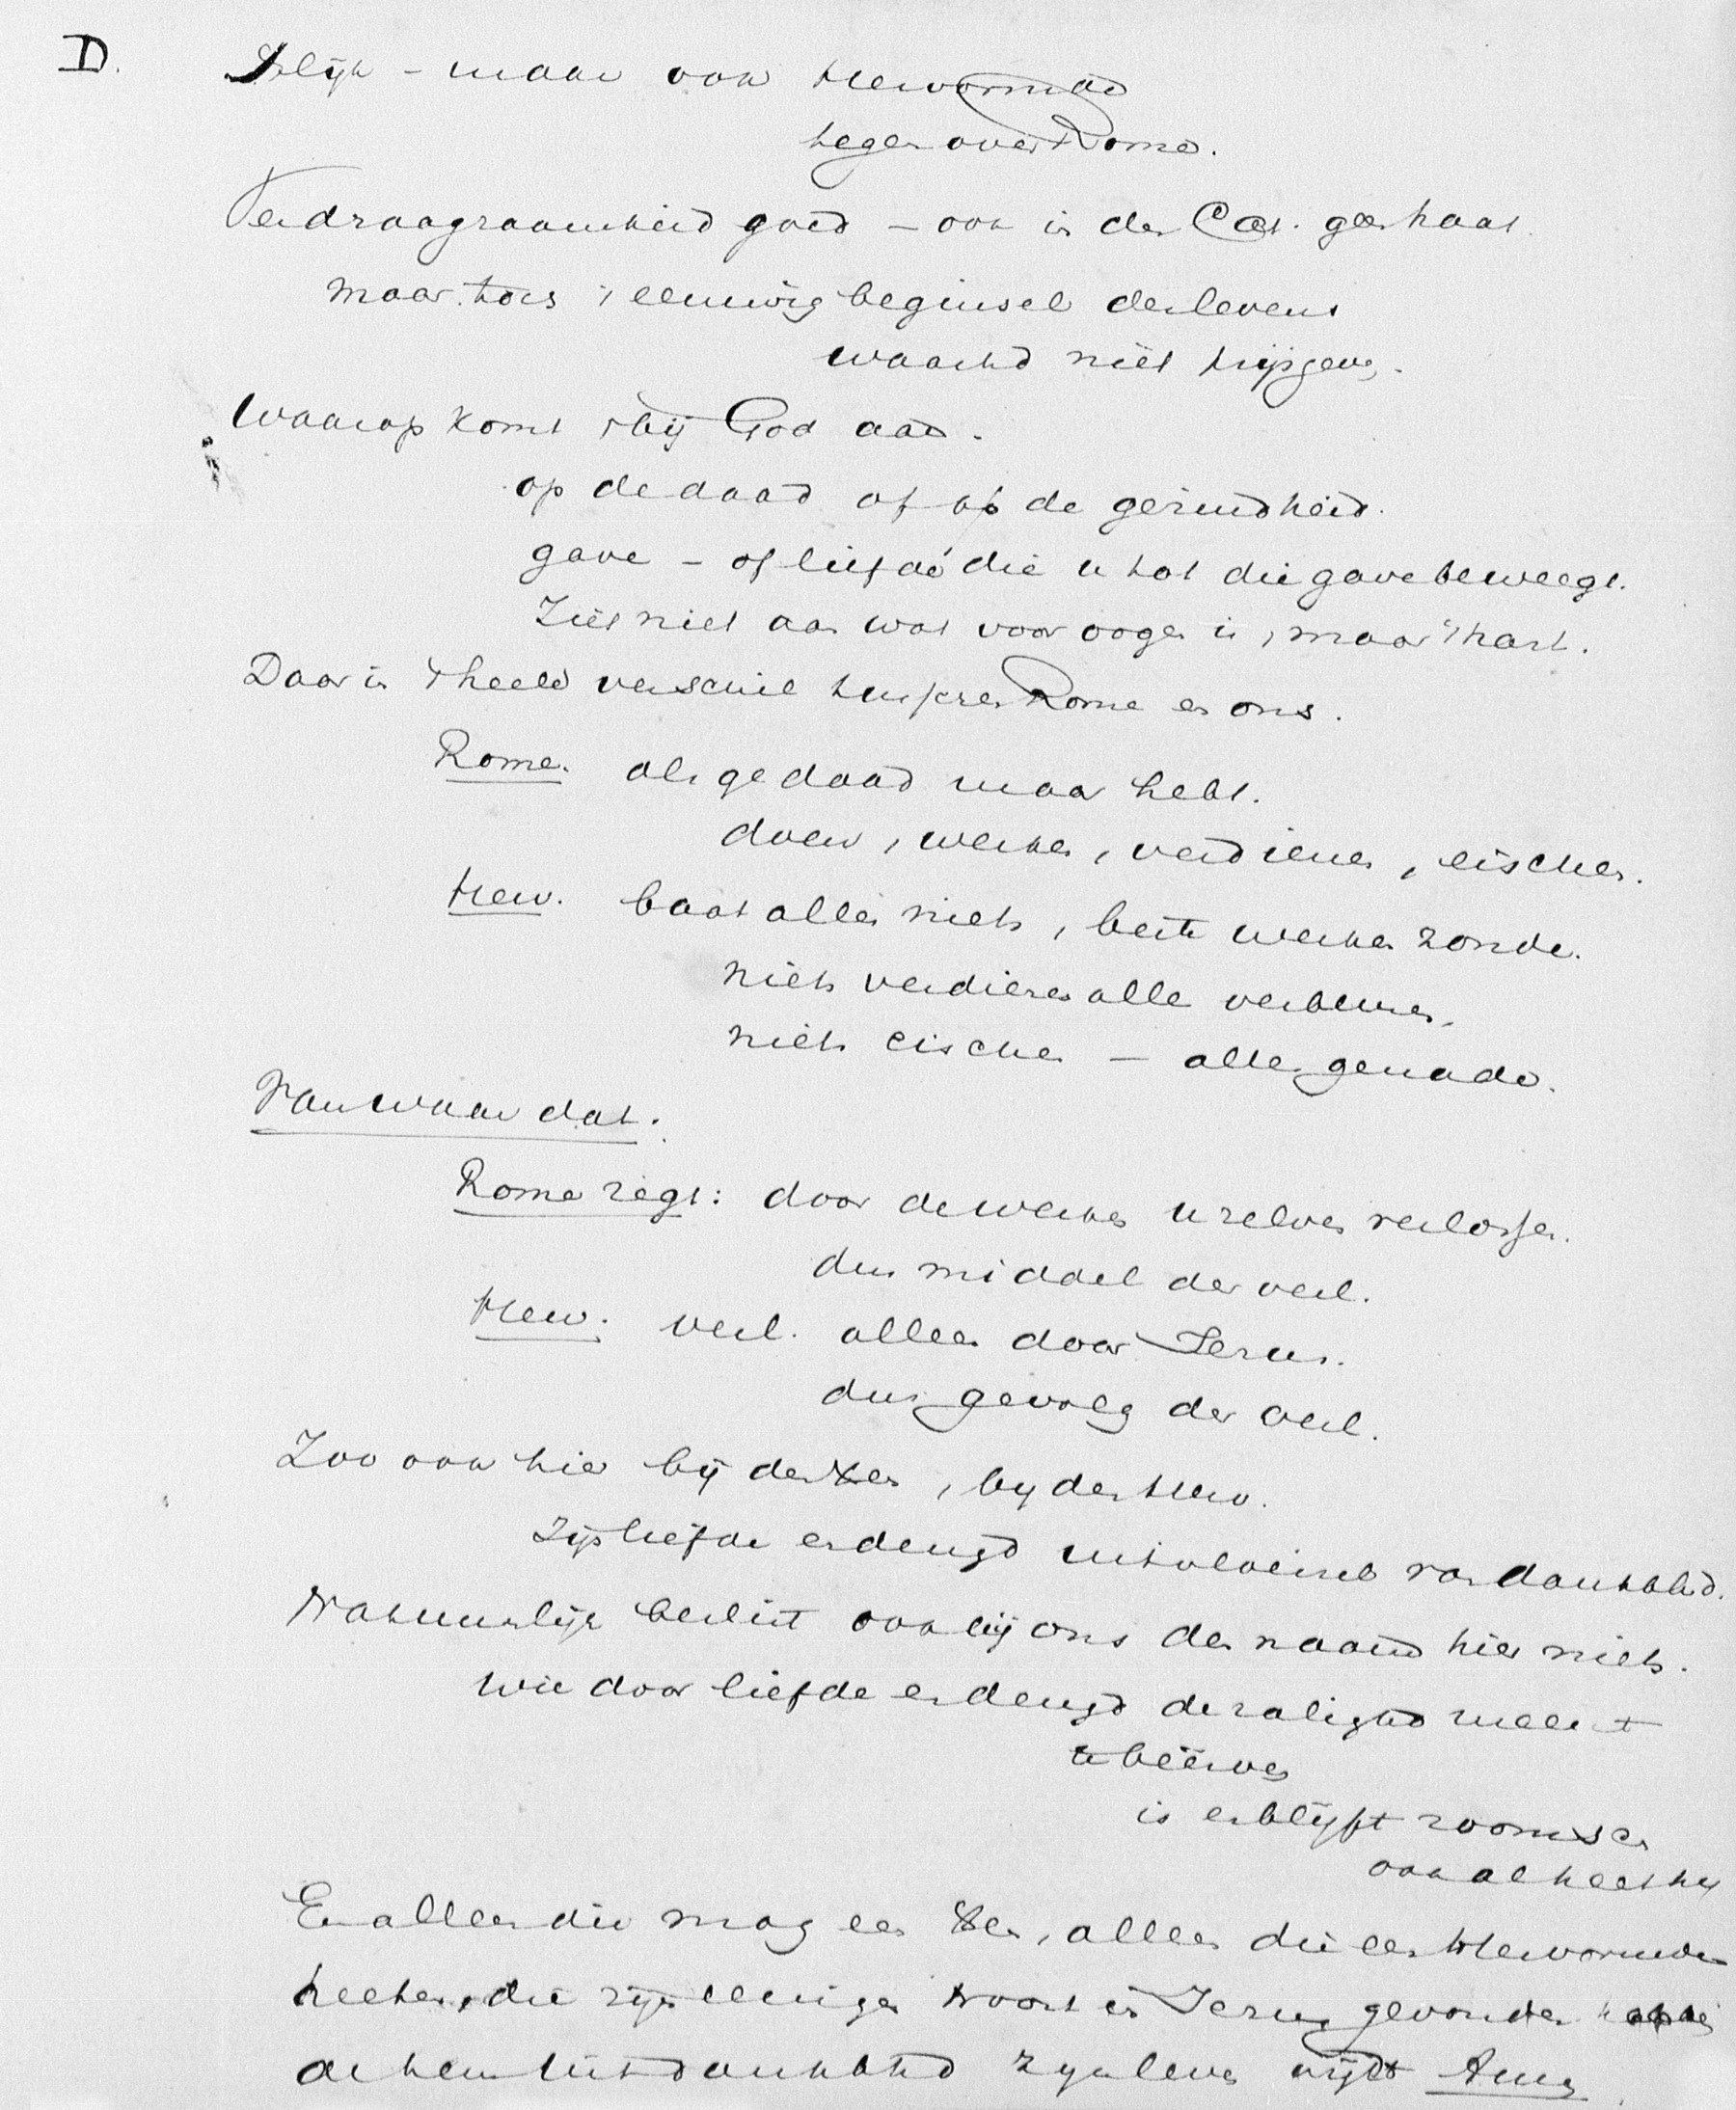 D. Blijk - maar ook Hervormde
tegenover Rome.
Verdraagzaamheid goed - ook in den Cat. geen haat.
maar toch 't eeuwig beginsel des levens
waarhd niet prijsgeven.
Waarop komt 't bij God aan.
op de daad of op de gezindheid.
gave - of liefde die u tot die gave beweegt.
Ziet niet aan wat voor oogen is, maar 't hart.
Daar in 't heele verschil tusschen Rome en ons.
Rome. als ge daad maar hebt.
doen, werken, verdienen, eischen.
Herv. baat alles niets, beste werken zonde.
niets verdienen alles verbeuren,
niets eischen - alles genade.
Van waar dat.
Rome zegt: door de werken u zelven verlossen.
dus middel der verl.
Herv. verl. alleen door Jezus.
dus gevolg der verl.
Zoo ook hier bij den Xen, by den Herv.
Zijn liefde en deugd uitvloeisel van dankbhd.
Natuurlijk beslist ook bij ons de naam hier niets.
Wie door liefde en deugd de zalighd meent
te beërven
is en blijft roomsch
ook al heet hy
En alleen die mag een Xen, alleen die een Hervormden
heeten, die zijn eenigen troost in Jezus gevonden hebbe
de hem uit dankbhd zyn leven wijdt Amen